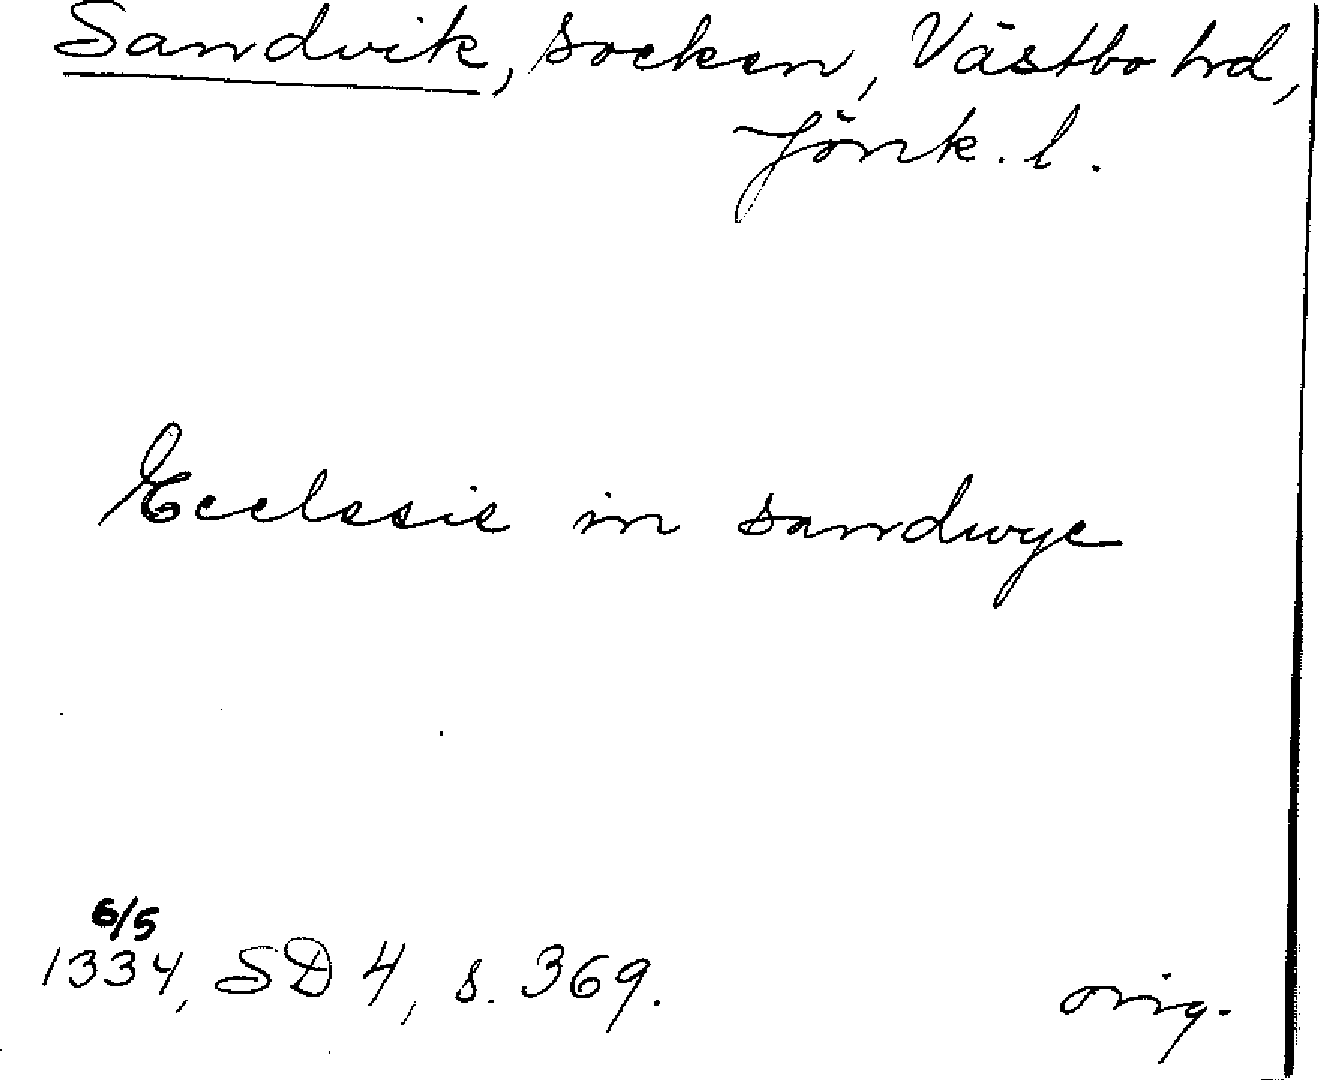 Sandvik, socken, Västbo hd,
Jönk. l.
Ecclesie in sandwye
6/5
1334, SD 4, s. 369.
orig.